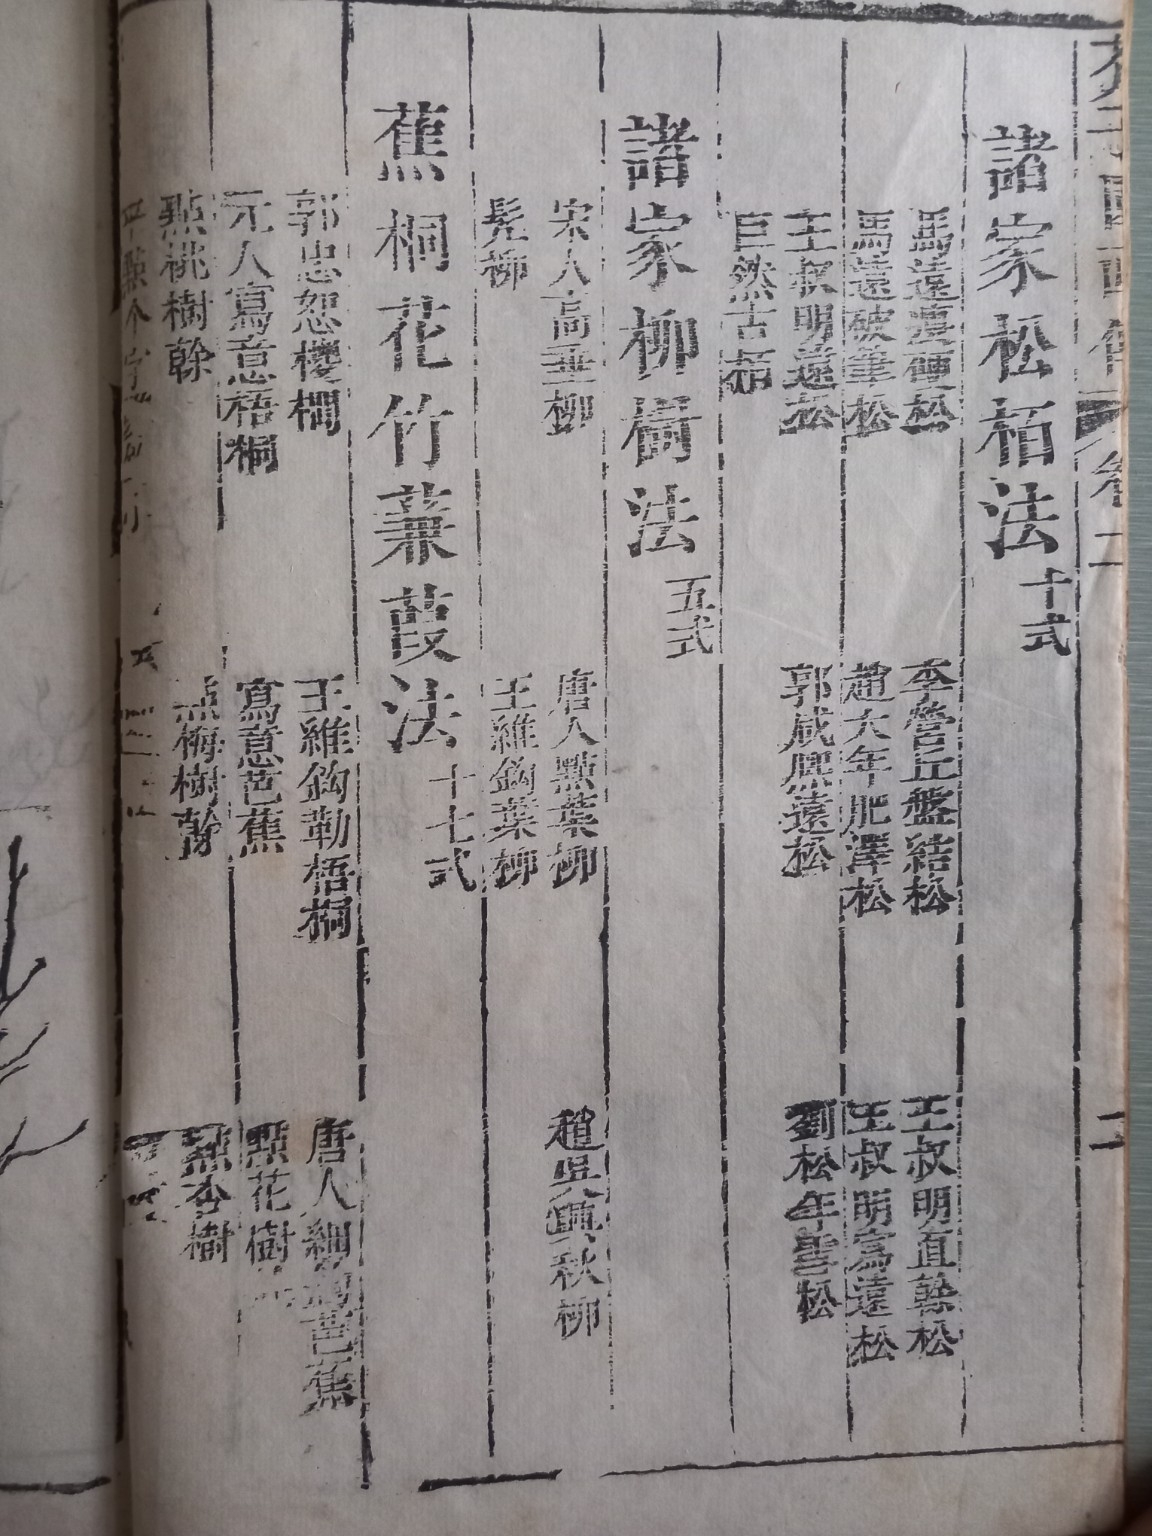 諸家松柏法 十式
馬遠瘦硬松 李營丘盤結松 王叔明直榦松
馬遠破筆松 趙大年肥澤松 王叔明寫遠松
王叔明遠松 郭咸熙遠松 劉松年雪松
巨然古栢
諸家柳樹法 五式
宋人高垂柳 唐人點葉柳 趙吳興秋柳
髡柳 王維鈎葉柳
蕉桐花竹蒹葭法 十七式
郭忠恕椶櫚 王維鈎勒梧桐 唐人細鈎芭蕉
元人寫意梧桐 寫意芭蕉 點花樹
點桃樹榦 點梅樹榦 點杏樹